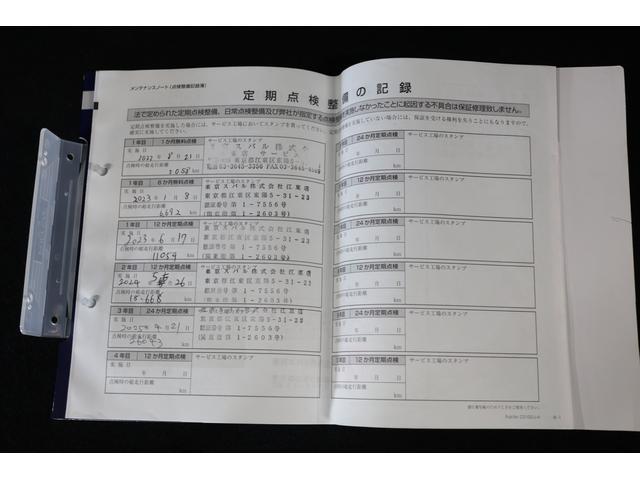 メンテナンスノート(点検整備記録簿)
定期点検整備の記録
法で定められた定期点検整備、日常点検整備及び弊社が指定する点検整備を実施しなかったことに起因する不具合は保証修理致しません。
定期点検整備を実施した場合には、サービス工場においてスタンプを
確実に実施してください。
実施していない場合には、保証を受ける権利を失うことにもなりますので、
1年目 1か月無料点検 サービス工場のスタンプ
実施日
2022年8月21日
点検時の総走行距離
1058 km
1年目 6か月無料点検 サービス工場のスタンプ
実施日
2023年1月8日
点検時の総走行距離
6692 km
東京スバル株式会社江東店
東京都江東区東陽5-31-23
認証番号第1-7556号
(指定第1-2603号)
1年目 12か月定期点検 サービス工場のスタンプ
実施日
2023年6月17日
点検時の総走行距離
11054 km
東京スバル株式会社江東店
東京都江東区東陽5-31-23
認証番号第1-7556号
(指定第1-2603号)
2年目 12か月定期点検 サービス工場のスタンプ
実施日
2024 26日
点検時の総走行距離
18,668 km
東京スバル株式会社江東店
東京都江東区東陽5-31-23
認証番号第1-7556号
(指定第1-2603号)
3年目 24か月定期点検 サービス工場のスタンプ
実施日
2025年 21日
点検時の総走行距離
km
東京都江東区東陽5-31-23
認証番号第1-7556号
1-2603号)
4年目 12か月定期点検 サービス工場のスタンプ
実施日
年 月 日
点検時の総走行距離
km
24か月定期点検 サービス工場のスタンプ
年 月 日
点検時の総走行距離
km
12か月定期点検 サービス工場のスタンプ
年 月 日
点検時の総走行距離
km
24か月定期点検 サービス工場のスタンプ
年 月 日
点検時の総走行距離
km
12か月定期点検 サービス工場のスタンプ
年 月 日
点検時の総走行距離
km
24か月定期点検 サービス工場のスタンプ
年 月 日
点検時の総走行距離
km
12か月定期点検 サービス工場のスタンプ
年 月 日
点検時の総走行距離
km